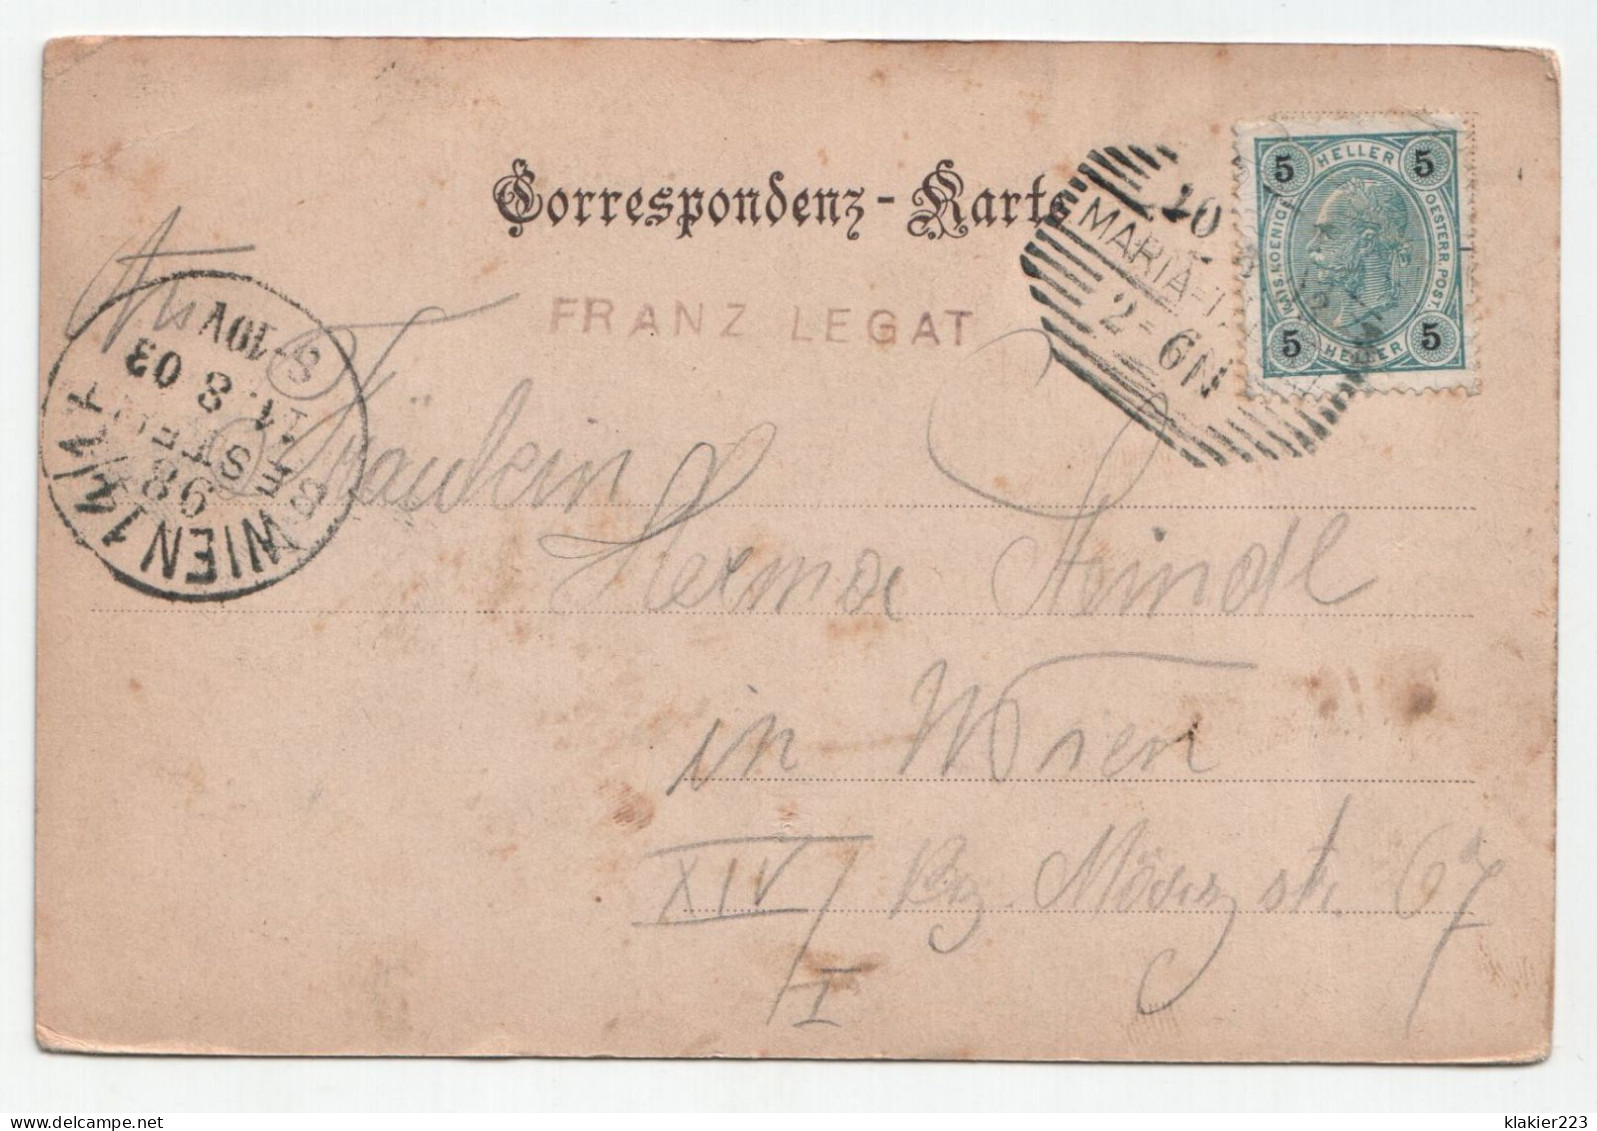 Correspondenz-Karte
5 HELLER 5
KAIS. KOENIGL. OESTERR. POST.
5 HELLER 5
MARIA-
2-6N
FRANZ LEGAT
An
WIEN 14/1
BESTELLT
98
11. 8 03
8-10V
Fräulein
Herma Steindl
in Wien
XIV/I
str. 67
klakier223